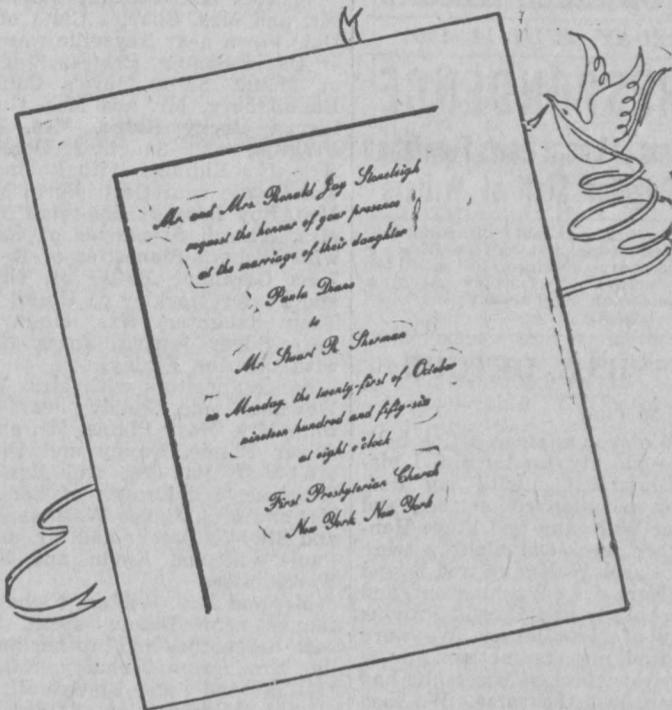 Mr. and Mrs. Ronald Jay Stoneleigh
request the honour of your presence
at the marriage of their daughter
Paula Diane
to
Mr. Stuart R. Sherman
on Monday the twenty-first of October
nineteen hundred and fifty-six
at eight o'clock
First Presbyterian Church
New York New York